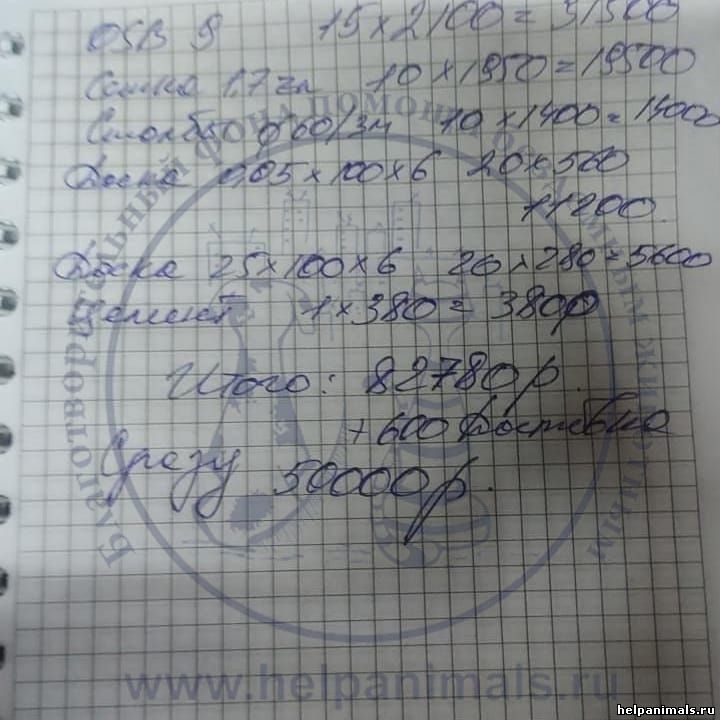 OSB 9 15 x 2100 = 31500
Сетка 1,7 2м 10 x 1950 = 19500
Столбы ф60/3м 10 x 1400 = 14000
Доска x 100 x 6 20 x 560
11200.
Доска 25 x 100 x 6 20 x 280 = 5600
Цемент 1 x 380 = 380р
Итого: 82780р.
+ 600 Доставка
Сразу 50000р.
Благотворительный фонд помощи бездомным животным
www.helpanimals.ru
helpanimals.ru